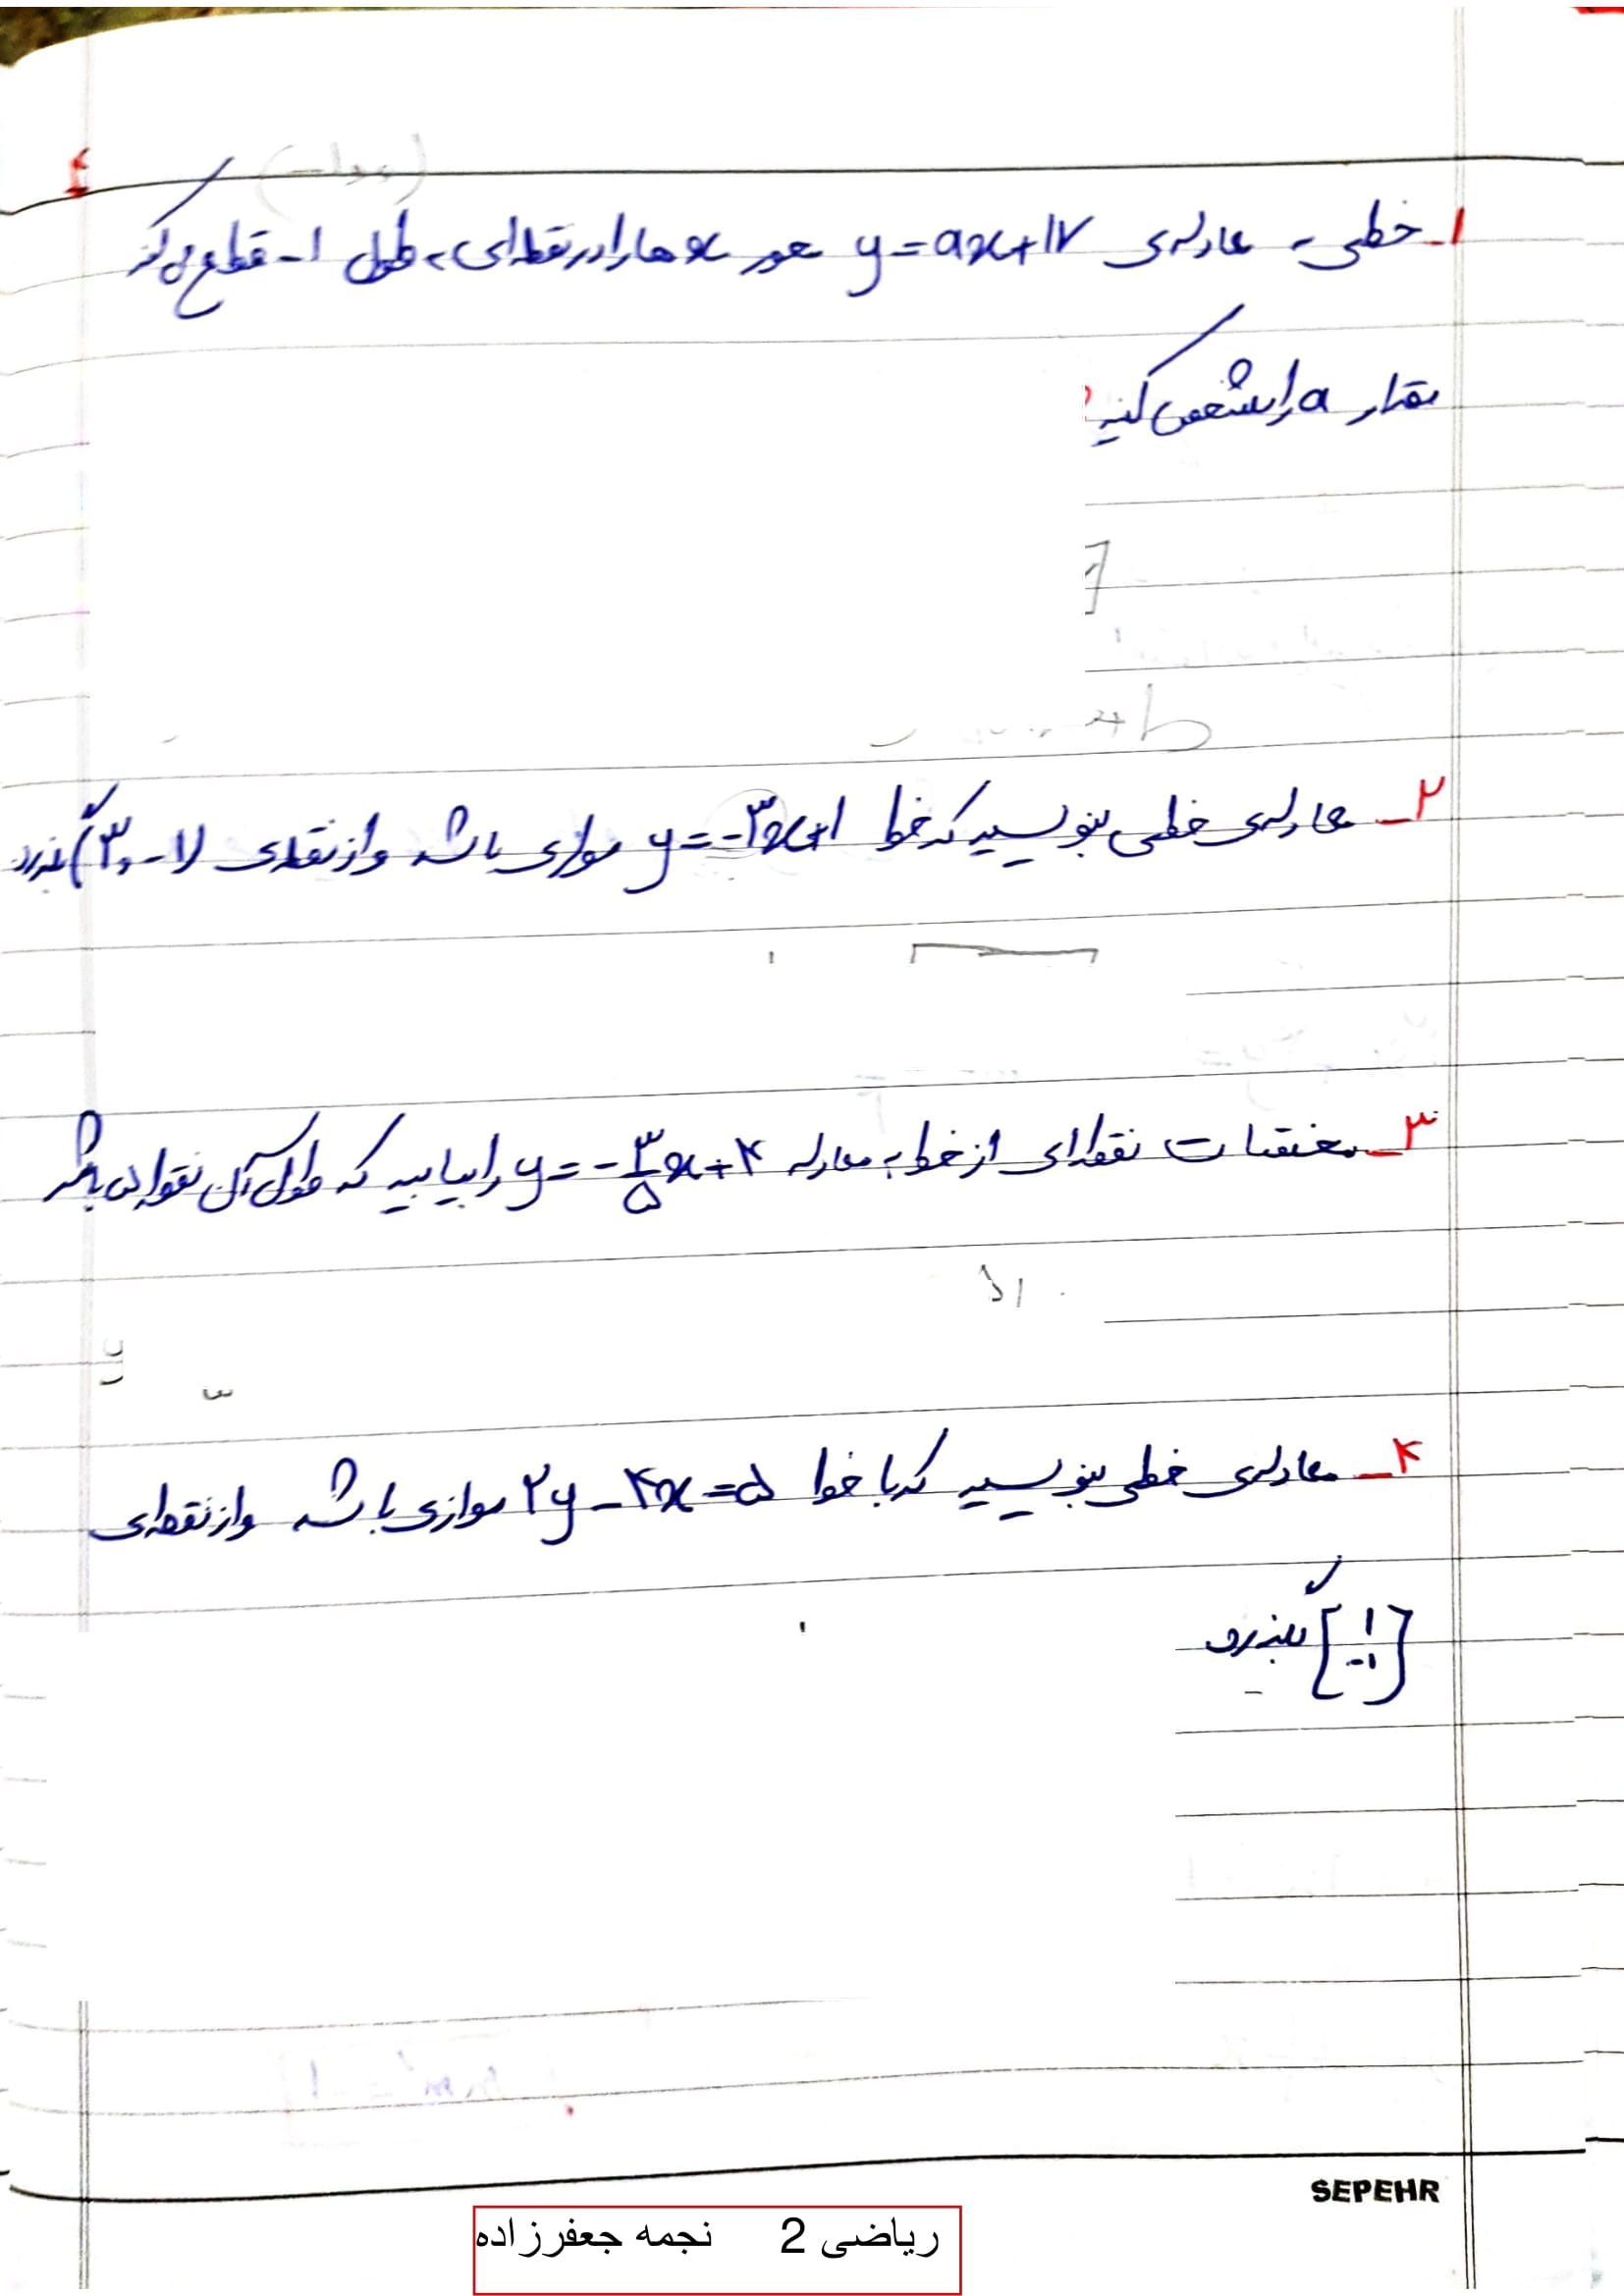 ٤
۱- خطی به معادله‌ی y = ax + ۱۷ محور x ها را در نقطه‌ای به طول ۱- قطع می‌کند
مقدار a را مشخص کنید
۲- معادله‌ی خطی بنویسید که خط y = -۳x+۱ موازی باشد و از نقطه‌ی (۳ و -۱) بگذرد
۳- مختصات نقطه‌ای از خط به معادله y = -۳/۵ x + ۴ را بیابید که طول آن نقطه باشد
۴- معادله‌ی خطی بنویسید که با خط ۲y - ۴x = ۵ موازی باشد و از نقطه‌ای
[۱ -۱] بگذرد
mm' = -۱
SEPEHR
ریاضی 2 نجمه جعفرزاده